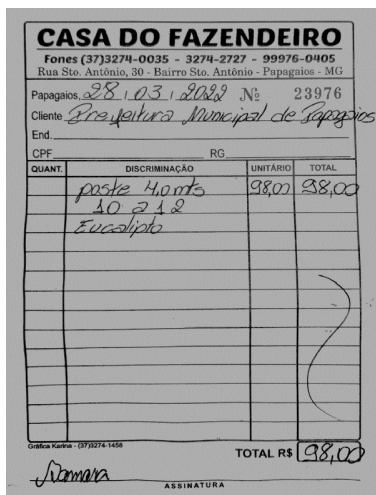 CASA DO FAZENDEIRO
Fones (37)3274-0035 - 3274-2727 - 99976-0405
Rua Sto. Antônio, 30 - Bairro Sto. Antônio - Papagaios - MG
Papagaios, 28 / 03 / 2022 Nº 23976
Cliente Prefeitura Municipal de Papagaios
End.
CPF RG
QUANT. DISCRIMINAÇÃO UNITÁRIO TOTAL
poste 4,0 mts 98,00 98,00
10 a 12
Eucalipto
Gráfica Karina - (37)3274-1458
TOTAL R$ 98,00
ASSINATURA